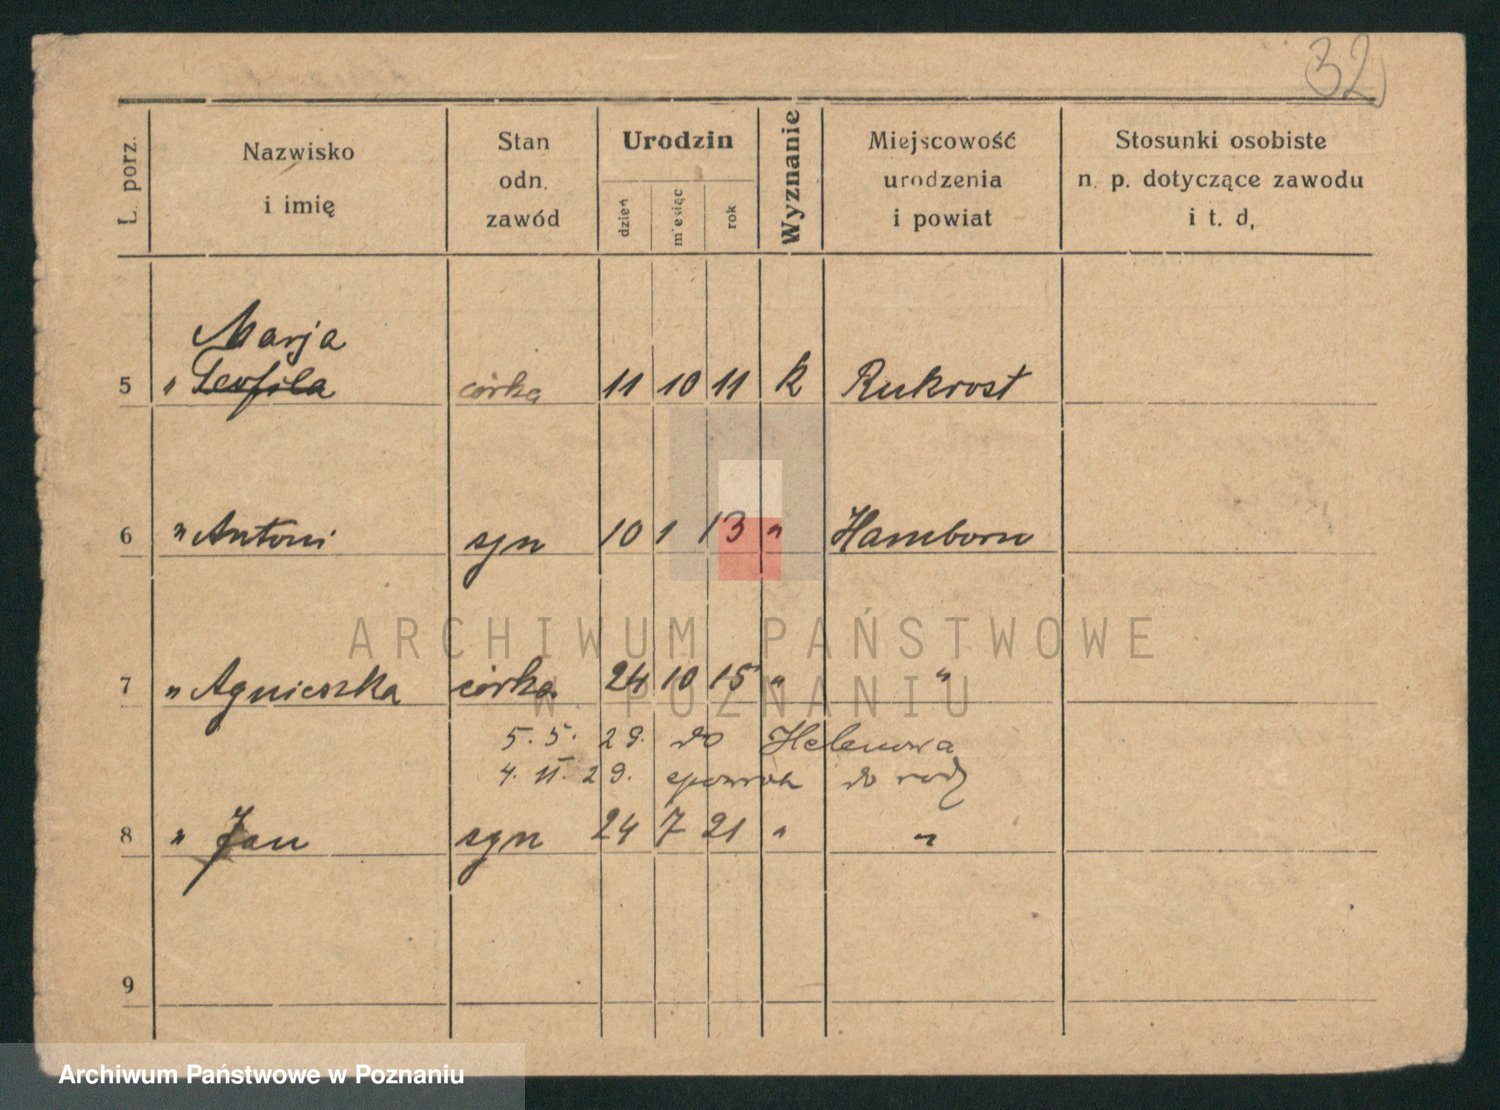 32
L. porz.
Nazwisko
i imię
Stan
odn.
zawód
Urodzin
dzień
miesiąc
rok
Wyznanie
Miejscowość
urodzenia
i powiat
Stosunki osobiste
n. p. dotyczące zawodu
i t. d,
Marja
5 " Teofila córka 11 10 11 k Rukrost
6 " Antoni syn 10 1 13 " Hamborn
ARCHIWUM PAŃSTWOWE
W POZNANIU
7 " Agnieszka córka 24 10 15 " "
5. 5. 29. do Helenowa
4. 11. 29. do
8 " Jan syn 24 7 21 " "
9
Archiwum Państwowe w Poznaniu